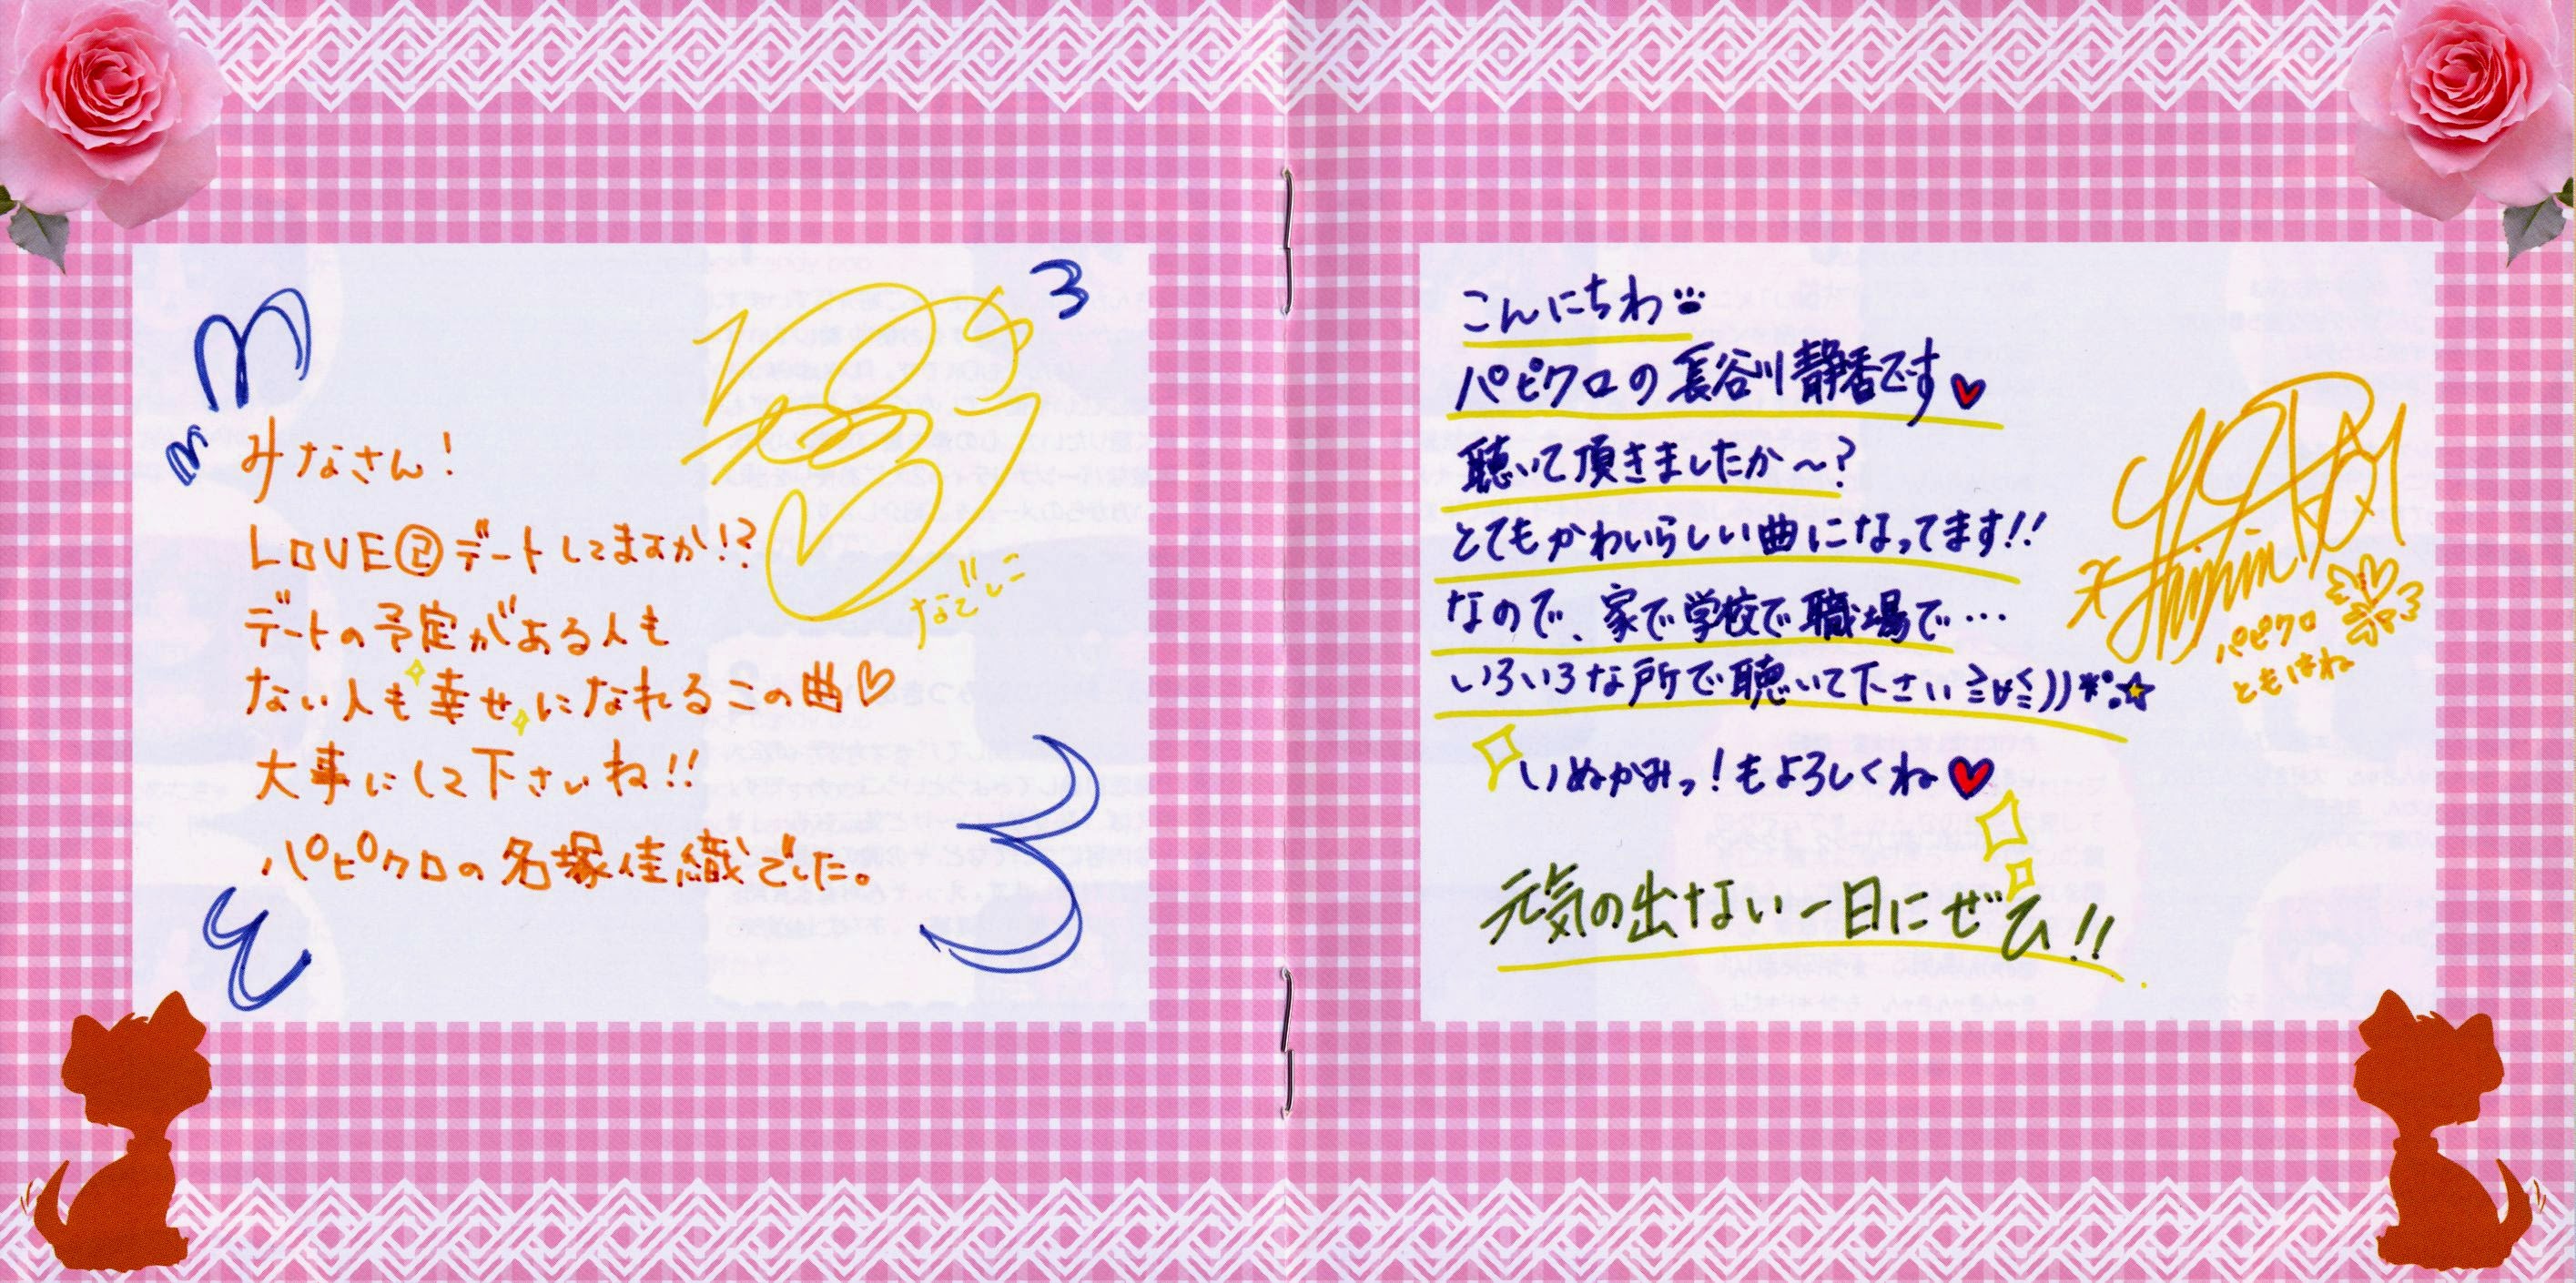 みなさん!
LOVE②デートしてますか!?
デートの予定がある人も
ない人も幸せになれるこの曲♡
大事にして下さいね!!
パピクロの名塚佳織でした。
なでしこ
こんにちわ
パピクロの長谷川静香です♥
聴いて頂きましたか～?
とてもかわいらしい曲になってます!!
なので、家で学校で職場で…
いろいろな所で聴いて下さい≧∀≦))*°☆
いぬかみっ!もよろしくね♥
元気の出ない一日にぜひ!!
パピクロ
ともはね